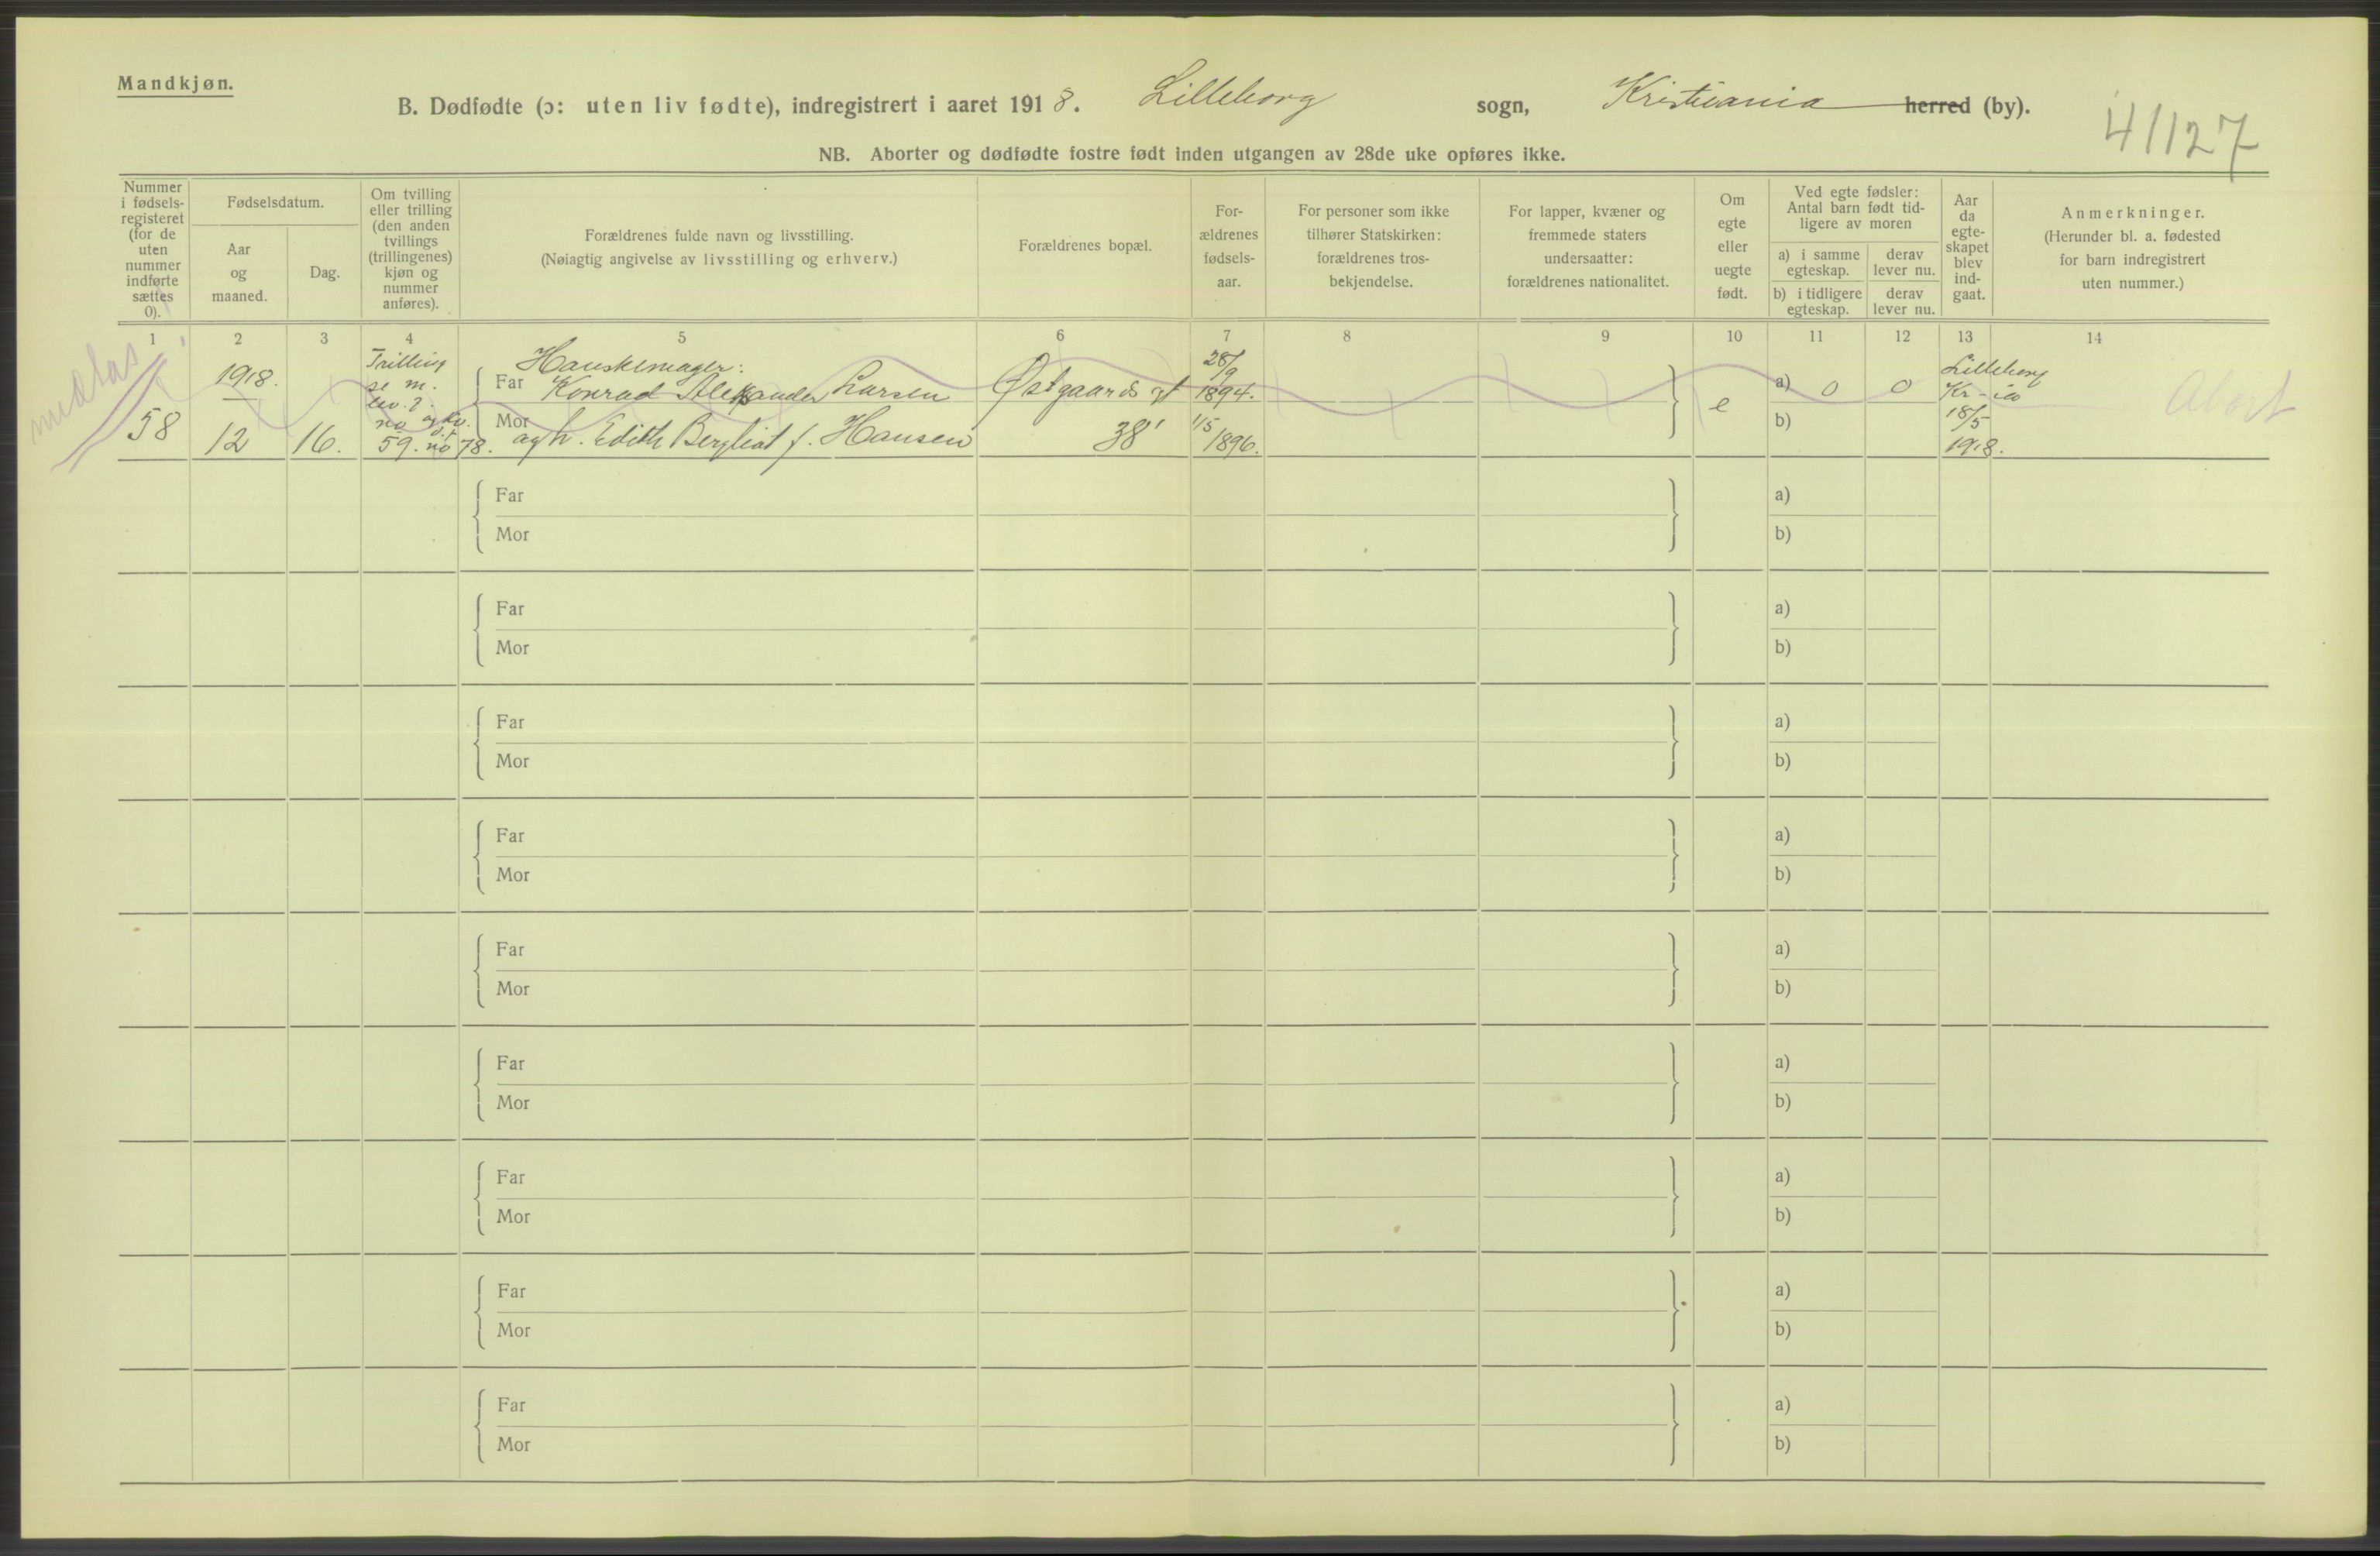 Mandkjøn.
B. Dødfødte (ɔ: uten liv fødte), indregistrert i aaret 1918. Lilleborg sogn, Kristiania herred (by).
41127
NB. Aborter og dødfødte fostre født inden utgangen av 28de uke opføres ikke.
Nummer i fødsels-registeret (for de uten nummer indførte sættes 0).
Fødselsdatum.
Aar og maaned.
Dag.
Om tvilling eller trilling (den anden tvillings (trillingenes) kjøn og nummer anføres).
Forældrenes fulde navn og livsstilling.
(Nøiagtig angivelse av livsstilling og erhverv.)
Forældrenes bopæl.
For-ældrenes fødsels-aar.
For personer som ikke tilhører Statskirken: forældrenes tros-bekjendelse.
For lapper, kvæner og fremmede staters undersaatter: forældrenes nationalitet.
Om egte eller uegte født.
Ved egte fødsler: Antal barn født tid-ligere av moren
a) i samme egteskap.
derav lever nu.
b) i tidligere egteskap.
derav lever nu.
Aar da egte-skapet blev ind-gaat.
Anmerkninger.
(Herunder bl. a. fødested for barn indregistrert uten nummer.)
1 2 3 4 5 6 7 8 9 10 11 12 13 14
58
1918.
12
16.
Trilling
se m.
lev. ?.
no og kv.
59. no 78.
Hanskemager:
Far Konrad Alexander Larsen
Mor og h. Edith Bergliot f. Hansen
Østgaards gt
38'
28/9
1894.
1/5
1896.
e
a) 0 0
b)
Lilleborg
Kr-ia
18/5
1918.
Abort
Far a)
Mor b)
Far a)
Mor b)
Far a)
Mor b)
Far a)
Mor b)
Far a)
Mor b)
Far a)
Mor b)
Far a)
Mor b)
Far a)
Mor b)
Far a)
Mor b)